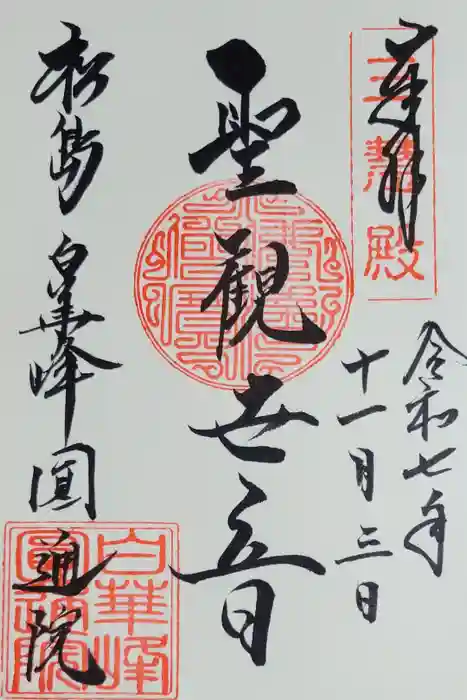 奉拝
三慧殿
令和七年
十一月三日
聖観世音
松島
白華峰
圓通院
白華峰
圓通院